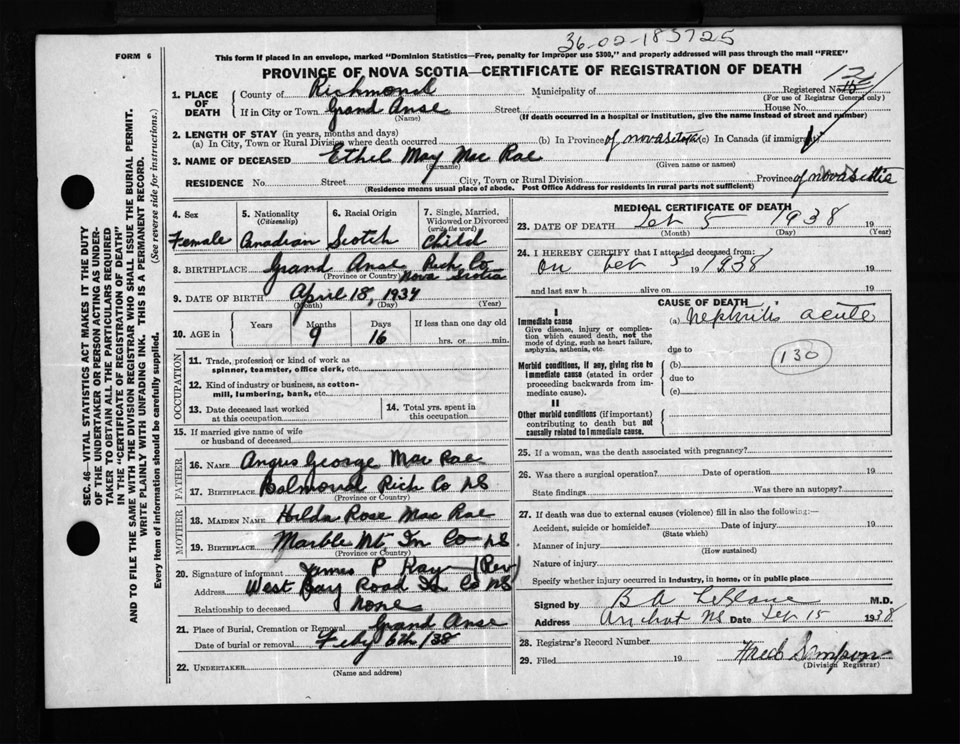 36-02-183725
FORM 6
This form if placed in an envelope, marked "Dominion Statistics—Free, penalty for improper use $300," and properly addressed will pass through the mail "FREE"
PROVINCE OF NOVA SCOTIA—CERTIFICATE OF REGISTRATION OF DEATH
SEC. 46—VITAL STATISTICS ACT MAKES IT THE DUTY
OF THE UNDERTAKER OR PERSON ACTING AS UNDER-
TAKER TO OBTAIN ALL THE PARTICULARS REQUIRED
IN THE "CERTIFICATE OF REGISTRATION OF DEATH"
AND TO FILE THE SAME WITH THE DIVISION REGISTRAR WHO SHALL ISSUE THE BURIAL PERMIT.
WRITE PLAINLY WITH UNFADING INK. THIS IS A PERMANENT RECORD.
Every item of information should be carefully supplied. (See reverse side for instructions.)
1. PLACE OF DEATH
County of Richmond Municipality of Registered No. 12
(For use of Registrar General only)
If in City or Town Grand Anse Street House No.
(Name) (If death occurred in a hospital or institution, give the name instead of street and number)
2. LENGTH OF STAY (in years, months and days)
(a) In City, Town or Rural Division where death occurred (b) In Province of nova scotia (c) In Canada (if immigrant)
3. NAME OF DECEASED Ethel May Mac Rae
(Surname) (Given name or names)
RESIDENCE No. Street City, Town or Rural Division Province of nova scotia
(Residence means usual place of abode. Post Office Address for residents in rural parts not sufficient)
4. Sex
Female
5. Nationality
(Citizenship)
Canadian
6. Racial Origin
Scotch
7. Single, Married, Widowed or Divorced
(write the word)
Child
8. BIRTHPLACE Grand Anse Rich Co
Nova Scotia
(Province or Country)
9. DATE OF BIRTH April 18, 1937
(Month) (Day) (Year)
10. AGE in Years Months Days If less than one day old
9 16 hrs. or min.
OCCUPATION
11. Trade, profession or kind of work as
spinner, teamster, office clerk, etc.
12. Kind of industry or business, as cotton-
mill, lumbering, bank, etc.
13. Date deceased last worked
at this occupation
14. Total yrs. spent in
this occupation
15. If married give name of wife
or husband of deceased
FATHER
16. NAME Angus George Mac Rae
17. BIRTHPLACE Balmoral Rich Co NS
(Province or Country)
MOTHER
18. MAIDEN NAME Hilda Rose Mac Rae
19. BIRTHPLACE Marble Mt In Co NS
(Province or Country)
20. Signature of informant James P Kay (Rev)
Address West Bay Road In Co NS
Relationship to deceased None
21. Place of Burial, Cremation or Removal Grand Anse
Date of burial or removal Feby 6th/38
22. UNDERTAKER
(Name and address)
MEDICAL CERTIFICATE OF DEATH
23. DATE OF DEATH Feb 5 1938 19
(Month) (Day) (Year)
24. I HEREBY CERTIFY that I attended deceased from:
on Feb 5 1938 19
and last saw h alive on 19
CAUSE OF DEATH
I
Immediate cause
Give disease, injury or complica-
tion which caused death, not the
mode of dying, such as heart failure,
asphyxia, asthenia, etc.
(a) Nephritis acute
due to
130
Morbid conditions, if any, giving rise to
immediate cause (stated in order
proceeding backwards from im-
mediate cause).
(b)
due to
(c)
II
Other morbid conditions (if important)
contributing to death but not
causally related to immediate cause.
25. If a woman, was the death associated with pregnancy?
26. Was there a surgical operation? Date of operation 19
State findings Was there an autopsy?
27. If death was due to external causes (violence) fill in also the following:—
Accident, suicide or homicide? Date of injury 19
(State which)
Manner of injury
(How sustained)
Nature of injury
Specify whether injury occurred in industry, in home, or in public place
Signed by B A LeBlanc M.D.
Address Arichat NS Date Feb 15 1938
28. Registrar's Record Number
29. Filed 19 Fred Sampson
(Division Registrar)